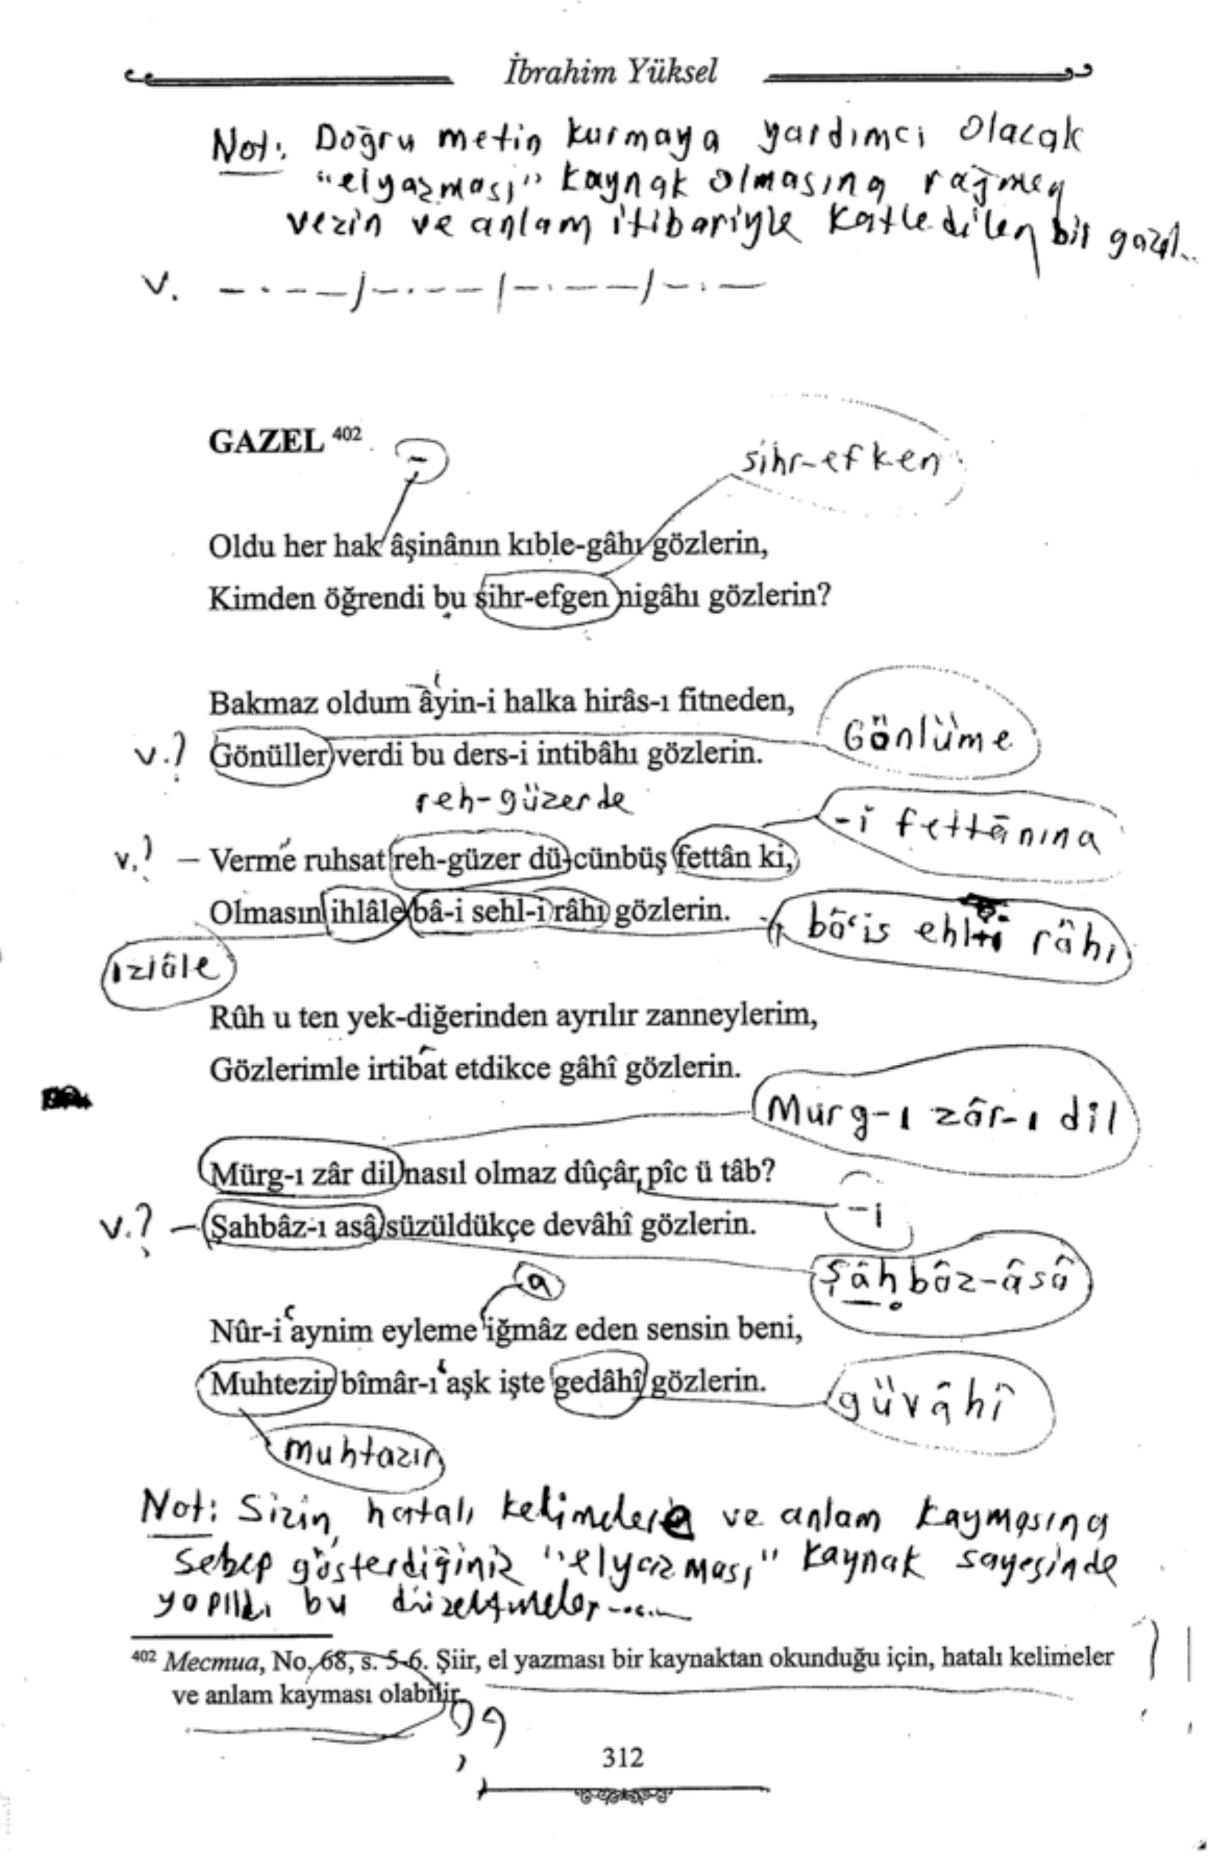 İbrahim Yüksel
Not: Doğru metin kurmaya yardımcı olacak
"elyazması" kaynak olmasına rağmen
vezin ve anlam itibariyle katledilen bir gazel...
v. – . – – / – . – – / – . – – / – . –
GAZEL 402
–
sihr-efken
Oldu her hak âşinânın kıble-gâhı gözlerin,
Kimden öğrendi bu sihr-efgen nigâhı gözlerin?
Bakmaz oldum âyin-i halka hirâs-ı fitneden,
v.? Gönüller verdi bu ders-i intibâhı gözlerin.
Gönlüme
reh-güzerde
-i fettânına
v.? – Verme ruhsat reh-güzer dü-cünbüş fettân ki,
Olmasın ihlâle bâ-i sehl-i râhı gözlerin.
bâ'is ehl-i râhı
ızlâle
Rûh u ten yek-diğerinden ayrılır zanneylerim,
Gözlerimle irtibat etdikce gâhî gözlerin.
Murg-ı zâr-ı dil
Mürg-ı zâr dil nasıl olmaz dûçâr pîc ü tâb?
-i
v.? – Şahbâz-ı asâ süzüldükçe devâhî gözlerin.
Şâhbâz-âsâ
a
Nûr-i aynim eyleme iğmâz eden sensin beni,
Muhtezir bîmâr-ı aşk işte gedâhî gözlerin.
güvâhî
muhtazır
Not: Sizin hatalı kelimelere ve anlam kaymasına
sebep gösterdiğiniz "elyazması" kaynak sayesinde
yapıldı bu düzeltmeler......
402 Mecmua, No. 68, s. 5-6. Şiir, el yazması bir kaynaktan okunduğu için, hatalı kelimeler
ve anlam kayması olabilir.
312